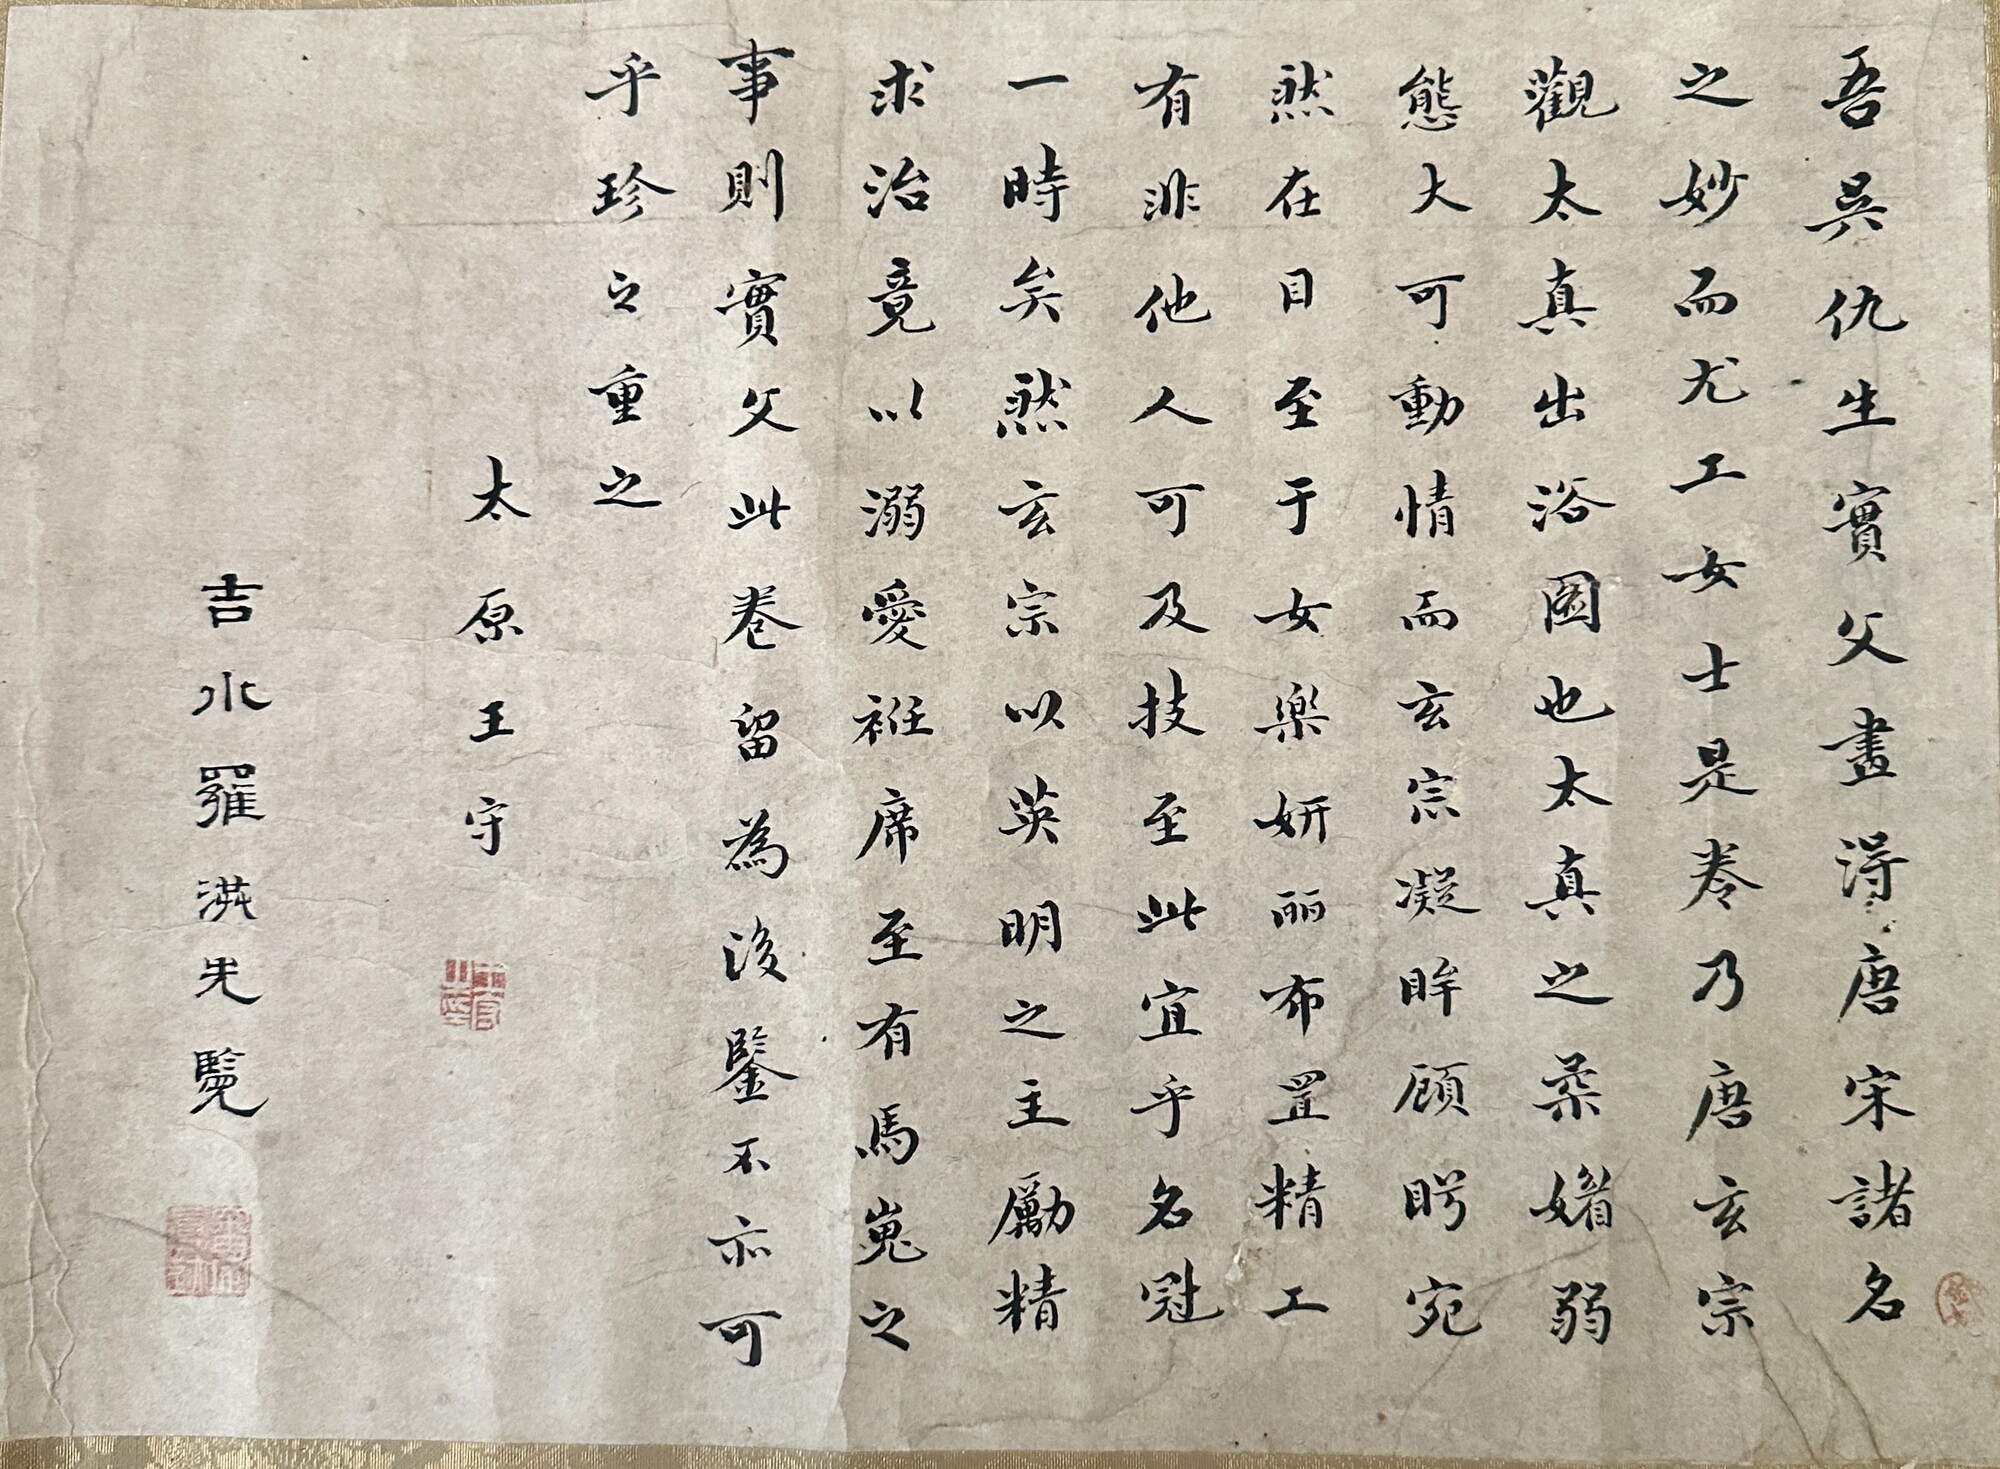 吾吳仇生實父畫得唐宋諸名
之妙而尤工女士是卷乃唐玄宗
觀太真出浴圖也太真之柔媚弱
態大可動情而玄宗凝眸顧盻宛
然在目至于女樂妍麗布置精工
有非他人可及技至此宜乎名冠
一時矣然玄宗以英明之主勵精
求治竟以溺愛袵席至有馬嵬之
事則實父此卷留為後鑒不亦可
乎珍之重之
太原王守
吉水羅洪先覽